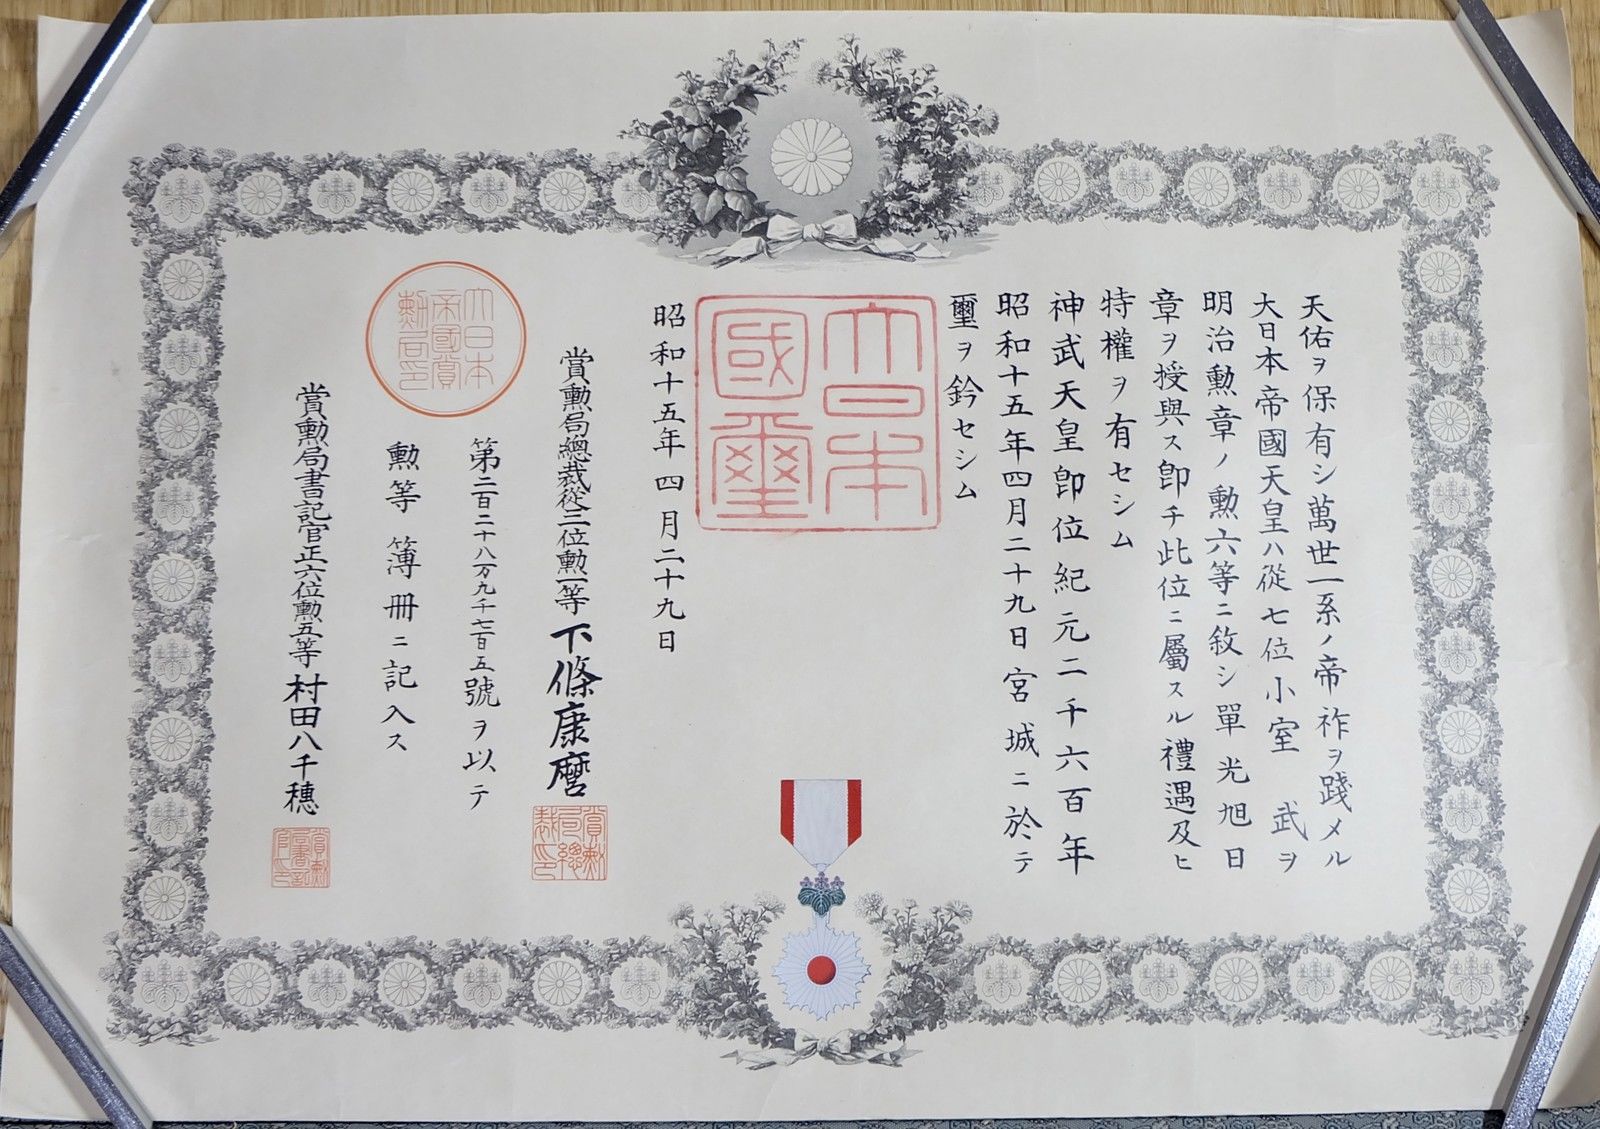 天佑ヲ保有シ萬世一系ノ帝祚ヲ踐メル
大日本帝國天皇ハ從七位小室武ヲ
明治勲章ノ勲六等ニ敘シ單光旭日
章ヲ授與ス卽チ此位ニ屬スル禮遇及ヒ
特權ヲ有セシム
神武天皇卽位紀元二千六百年
昭和十五年四月二十九日宮城ニ於テ
璽ヲ鈐セシム
大日本
國璽
昭和十五年四月二十九日
賞勲局總裁從三位勲一等下條康麿
賞勲局總裁印
第二百二十八万九千七百五號ヲ以テ
勲等簿冊ニ記入ス
大日本帝國賞勲局印
賞勲局書記官正六位勲五等村田八千穗
賞勲局書記官印